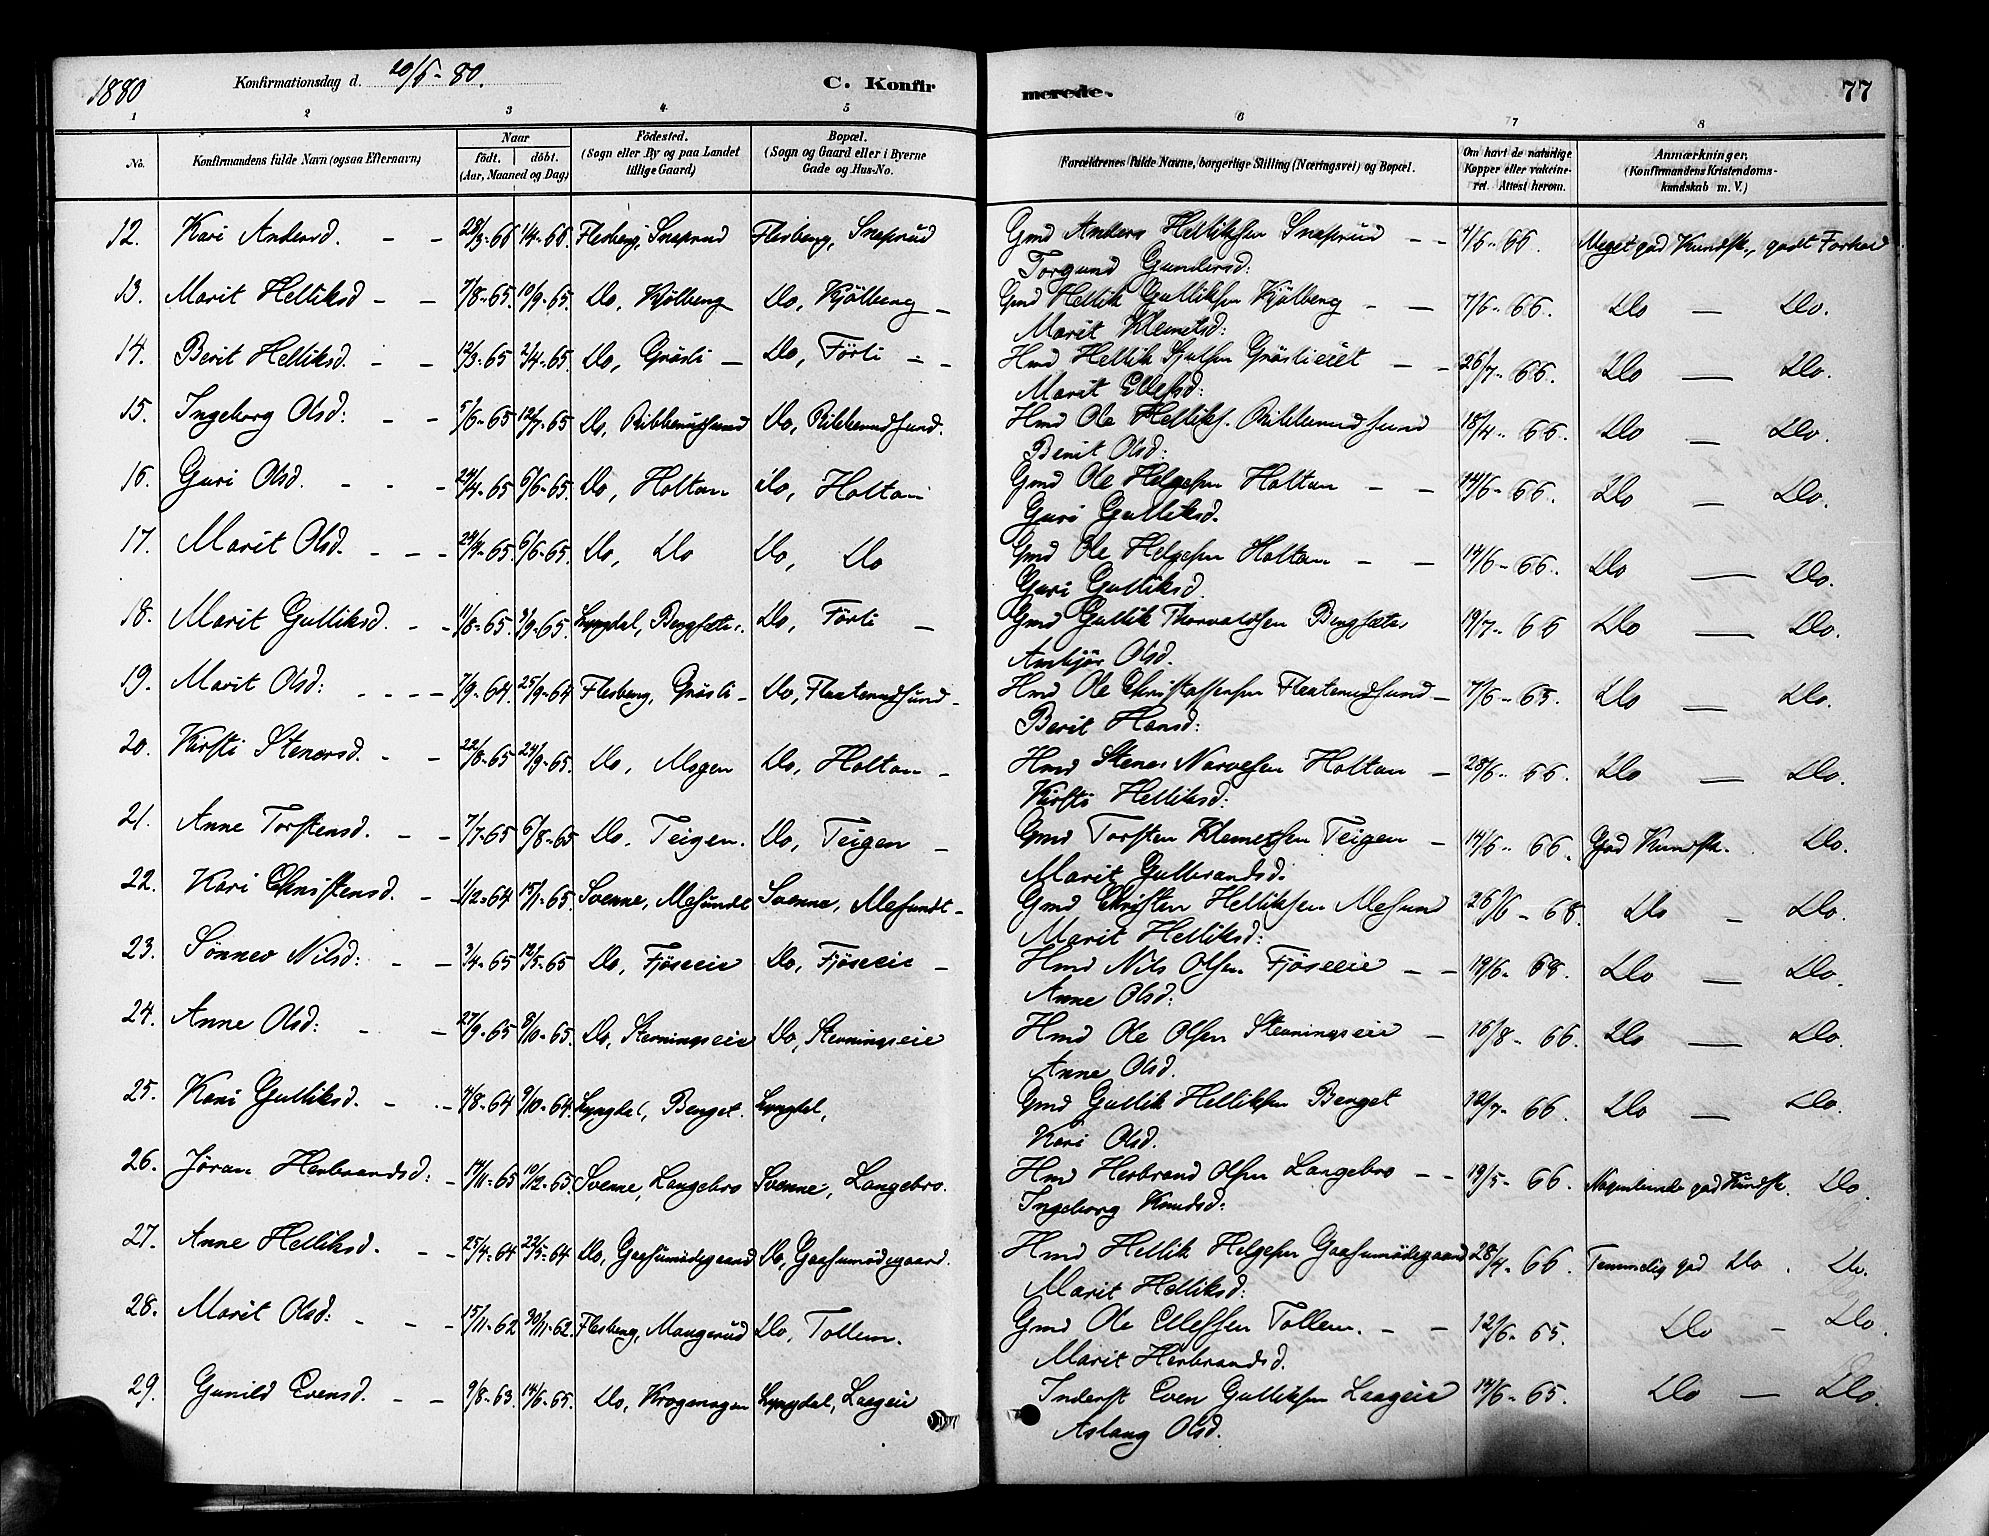 1880 Konfirmationsdag d. 20/6-80. C. Konfirmerede. 77
1 2 3 4 5 6 7 8
No. Konfirmandens fulde Navn (ogsaa Efternavn) Naar födt. döbt. (Aar, Maaned og Dag) Födested. (Sogn eller By og paa Landet tillige Gaard) Bopæl. (Sogn og Gaard eller i Byerne Gade og Hus-No. Forældrenes fulde Navne, borgerlige Stilling (Næringsvei) og Bopæl. Om havt de naturlige Kopper eller vakcineret. Attest herom. Anmærkninger. (Konfirmandens Kristendomskundskab m. V.)
12. Kari Andersd. - - 28/3-66 1/4-66 Flesberg, Snaprud Flesberg, Snaprud Gmd Anders Helliksen Snaprud - - 4/6-66. Meget god Kundsk., godt Forhold
Torgund Gundersd:
13. Marit Helliksd - - 7/8-65. 10/9-65. Do, Kjölberg Do, Kjölberg - Gmd Hellik Gulliksen Kjölberg - - 7/6-66. Do - Do.
Marit Klemetsd:
14. Berit Helliksd. - - 12/3-65 2/4-65. Do, Gråsli - Do, Förli - - Hmd Hellik Gråslieiet - - 26/7-66. Do - Do.
Marit Ellefsd:
15. Ingeborg Olsd: - - 5/6-65 12/7-65 Do, Do, Hmd Ole Helliks. 18/4-66. Do - Do.
Berit Olsd:
16. Guri Olsd. - - - 24/4-65 6/6-65. Do, Holtan Do, Holtan Gmd Ole Helgesen Holtan - - 14/6-66. Do - Do.
Guri Gulliksd.
17. Marit Olsd. - - - 24/4-65 6/6-65. Do, Do Do, Do Gmd Ole Helgesen Holtan - - 14/6-66. Do - Do.
Guri Gulliksd.
18. Marit Gulliksd. - - 11/8-65. 3/9-65. Lyngdal, Bergsæter. Do, Förli - Gmd Gullik Thorvaldsen Bergsæter 19/7-66 Do - Do.
Ambjör Olsd.
19. Marit Olsd: - - - - 7/9-64. 25/9-64 Flesberg, Gråsli - Do, Flaterudsund - Hmd Ole Christoffersen Flaterudsund - 7/6-65. Do - Do.
Berit Hansd:
20. Kirsti Stenarsd. - - 22/8-65 24/9-65. Do, Mogen Do, Holtan - Hmd Stenar Narvesen Holtan - 28/6-66. Do - Do.
Kirsti Helliksd:
21. Anne Torstensd. - - 7/7-65 6/8-65 Do. Teigen. Do, Teigen - Gmd Torsten Klemetsen Teigen - 14/6-66. God Kundsk. Do.
Marit Gulbrandsd.
22. Kari Christensd. - - 1/12-64 15/1-65. Svenne, Mesundt Svenne, Mesundt - Gmd Christen Helliksen Mesund 26/6-68. Do - Do.
Marit Helliksd:
23. Sönnev Nilsd: - - 3/4-65 12/5-65 Do, Fjöseie Do, Fjöseie - Hmd Nils Olsen Fjöseeie - - 19/6-68. Do - Do.
Anne Olsd:
24. Anne Olsd: - - 27/9-65 8/10-65. Do, Stevningseie Do, Stevningseie Hmd Ole Olsen Stevningseie - 16/8-66. Do - Do.
Anne Olsd.
25. Kari Gulliksd. - - 4/8-64 9/10-64. Lyngdal, Berget. Lyngdal, Gmd Gullik Helliksen Berget 12/7-66. Do - Do.
Kari Olsd.
26. Jöran Herbrandsd: - 14/11-65 10/12-65. Svenne, Langebro Svenne, Langebro. Hmd Herbrand Olsen Langebro - - 19/5-66. Nogenlunde god Kundsk. Do.
Ingeborg Knudsd:
27. Anne Helliksd. - - 25/4-64 22/5-64 Do, Do, Hmd Hellik Helgesen 28/4-66. Temmelig god Do. Do.
Marit Helliksd:
28. Marit Olsd: - - - 15/11-62 30/11-62. Flesberg, Mangerud Do, Tollem. Gmd Ole Ellefsen Tollem. - - 12/6-65. Do - Do.
Marit Herbrandsd.
29. Gunild Evensd. - - 9/8-63. 14/6-65. Do, Krogmogen Lyngdal, Laageie Inderst Even Gulliksen Laageie 14/6-65. Do - Do.
Aslaug Olsd.